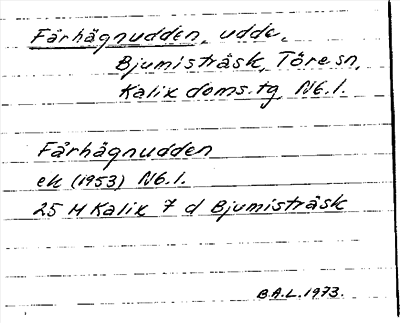 Fårhågnudden, udde,
Bjumisträsk, Töre sn,
Kalix doms.tg, Nb.l.
Fårhågnudden
ek (1953) Nb.l.
25 M Kalix 7 d Bjumisträsk
B.A.L. 1973.